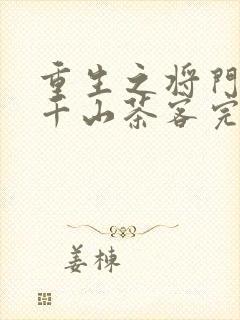 重生之将門
千山茶客完
姜棟